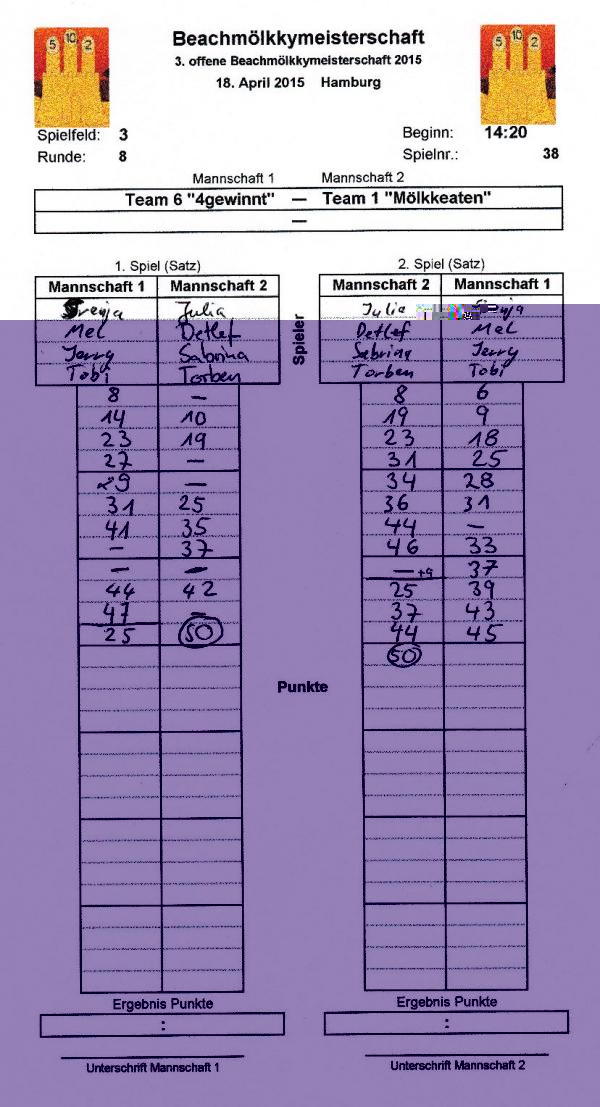 5 10 2
5 10 2
Beachmölkkymeisterschaft
3. offene Beachmölkkymeisterschaft 2015
18. April 2015 Hamburg
Spielfeld: 3 Beginn: 14:20
Runde: 8 Spielnr.: 38
Mannschaft 1 Mannschaft 2
Team 6 "4gewinnt" — Team 1 "Mölkkeaten"
—
1. Spiel (Satz) 2. Spiel (Satz)
Mannschaft 1 Mannschaft 2 Mannschaft 2 Mannschaft 1
Svenja Julia Julia
Mel Detlef Detlef Mel
Jerry Sabrina Sabrina Jerry
Tobi Torben Torben Tobi
Spieler
8 – 8 6
14 10 19 9
23 19 23 18
27 – 31 25
29 – 34 28
31 25 36 31
41 35 44 –
– 37 46 33
– – – +9 37
44 42 25 39
47 – 37 43
25 50 44 45
50
Punkte
Ergebnis Punkte Ergebnis Punkte
: :
Unterschrift Mannschaft 1 Unterschrift Mannschaft 2